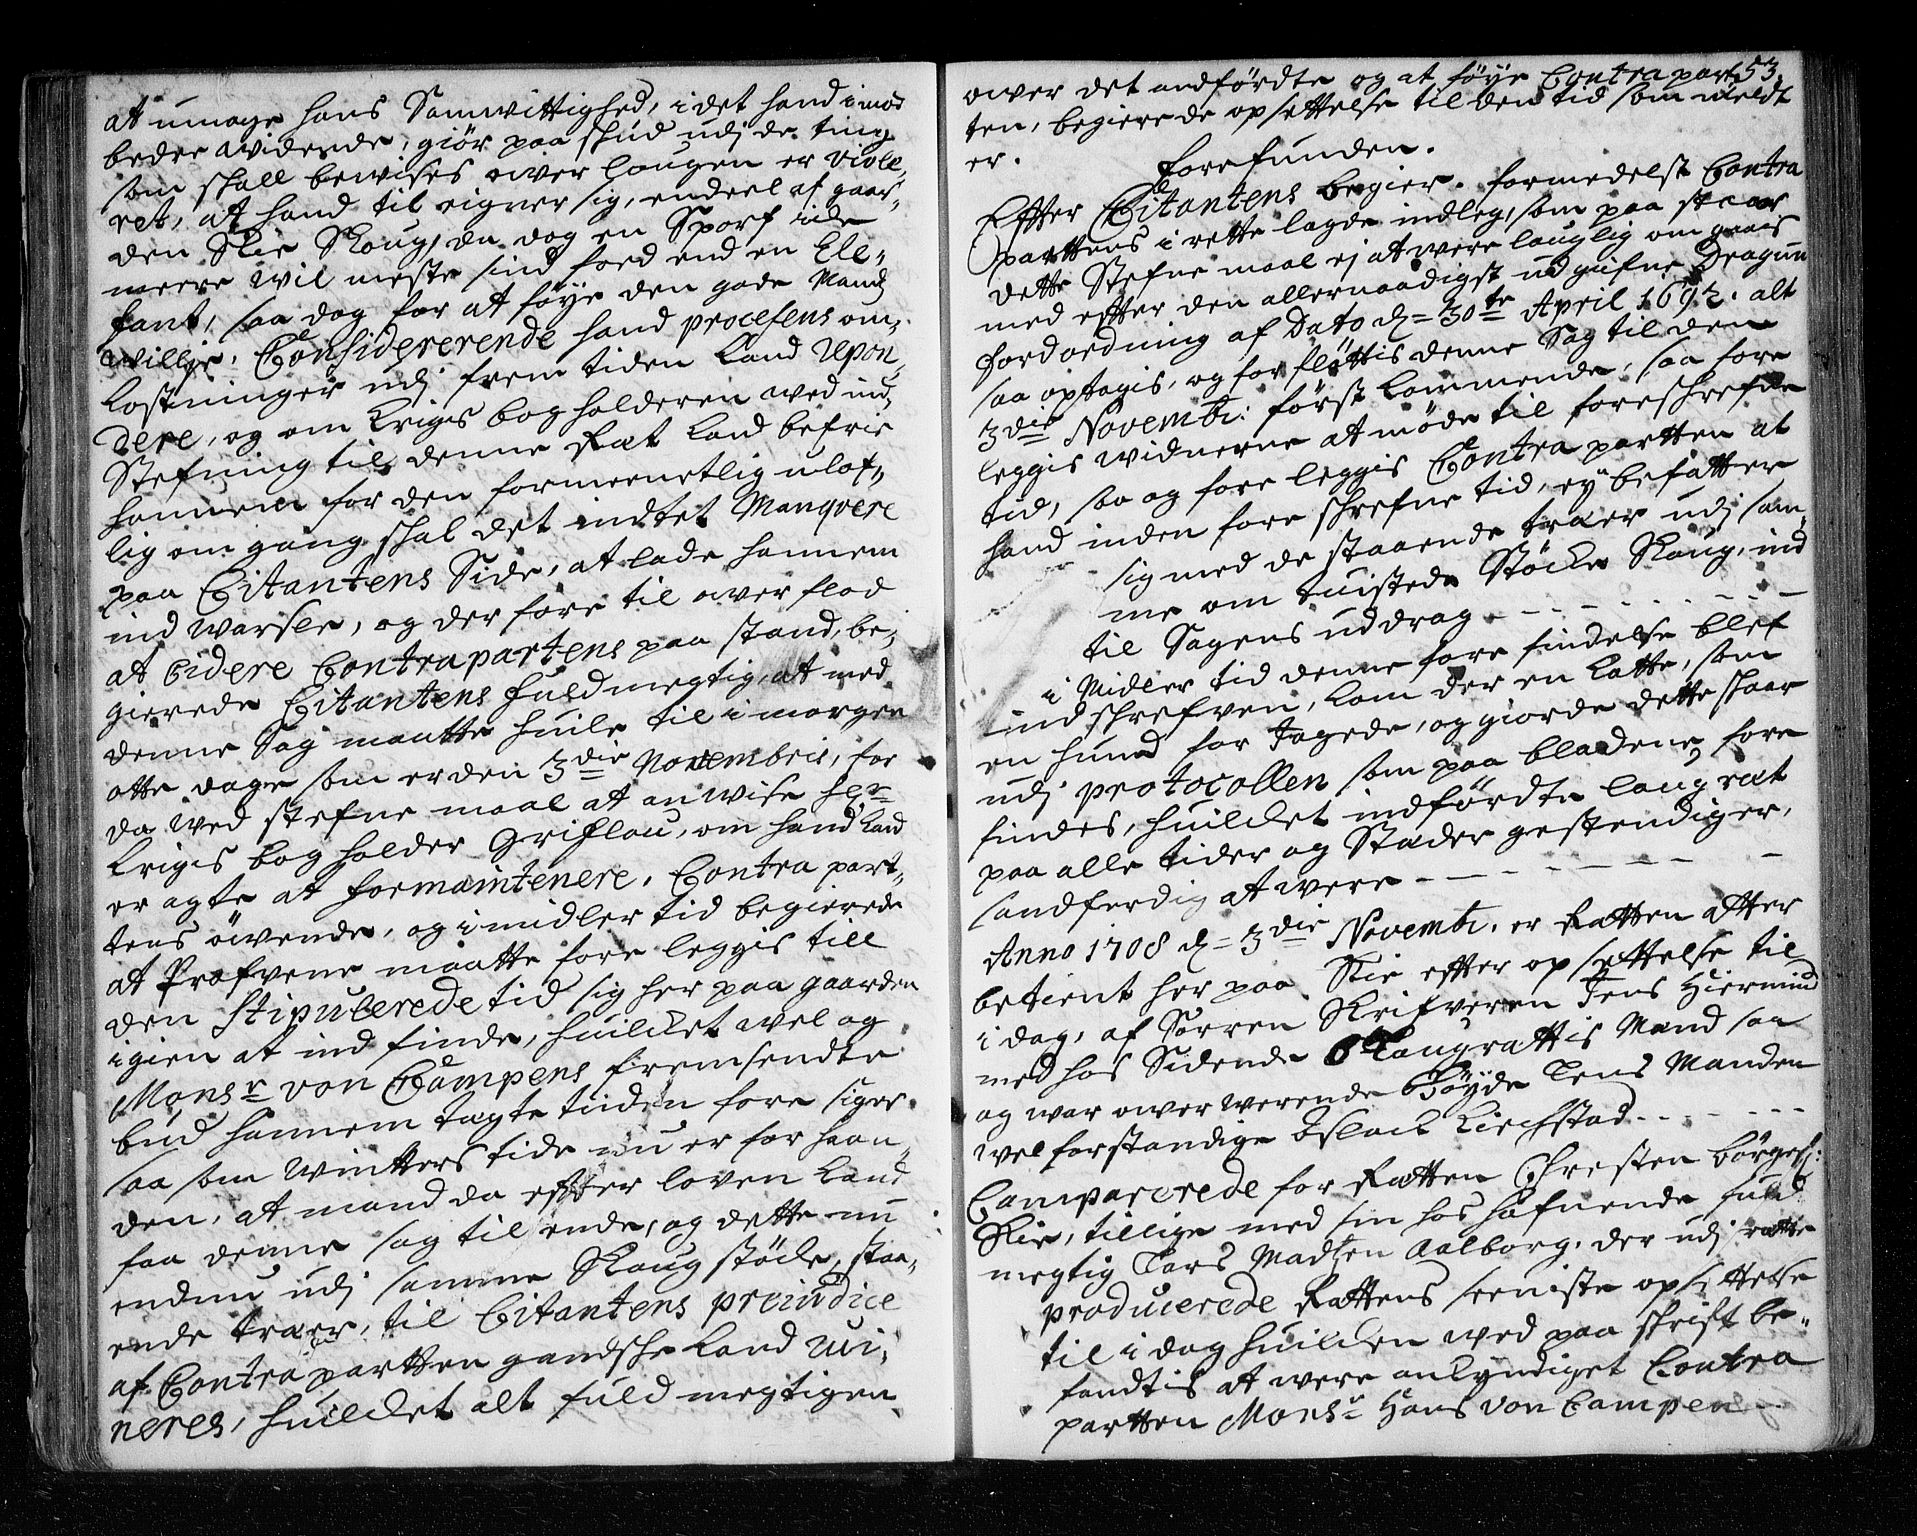 at umage hans Samwittighed, i det hand imod
beder avidende, giör paa skud udj de ting
som skall bewises ower laugen er viole,,
ret, at hand til eigner sig, endeel af gaar,,
den Skie Skoug, da dog en Sporf icke
meere wil meste sind foed end en Ele,,
fant, saa dog for at föÿe den gode Mands
willje. Considererende hand processens om,,
kostninger udj frem tiden kand Upon,,
dere, og om krigs bog holderen ved ind,,
Stefning til denne Ræt kand befrie
hannem for den formeenetlig ulof,,
lig om gang skal det indtet Manqvere
paa Citantens Side, at lade hannem
ind warsle, og der fore til ower flod
at Cidere Contrapartens paa stand, be,,
gierede Citantens fuldmegtig, at med
denne Sag maatte huile til i morgen
otte dage som er den 3die Novembris, for
da wed stefne maal at anwise her
krigs bog holder Griflou, om hand kand
er agte at formaintenere, Contra part,,
tens öwende, og imidler tid begierede
at Profvene maatte fore leggis till
den Stipulerede tid sig her paa gaarden
igien at ind finde, huilcket wel og
Monsr von Campens fremsendte
bud hannem tagte tiiden fore siger
saa som Winters tide nu er for haan,,
den, at mand da efter loven kand
faa denne sag til ende, og dette nu
endnu udj samme Skoug stöcke, staa,,
ende træer, til Citantens preiudice
af Contra partten gandske kand Rui,,
neres, huilcket alt fuld megtigen
53.
ower det andfördte og at föÿe Contra part
ten, begierede opsettelse til den tid som meldt
er.
Forefunden.
Efter Citantens begier. formedelst Contra
parttens i rette lagde indleg, som paa staar
dette Stefne maal ej at were lauglig om gaais
med efter den allernaadigst udgifne Dragun
fordordning af Dato d= 30te April 1692. alt
saa optagis, og for flöttis denne Sag til den
3die Novembr: först kommende, saa fore
leggis widnerne at möde til foreskrefne
tid, saa og fore leggis Contra partten at
hand inden fore skrefne tid, eÿ befatter
sig med de staaende træer udj sam,,
me om tuistede Stöcke Skoug, ind
til Sagens uddrag - - - - - - -
i Midler tid denne fore findelse blef
indskrefven, kom der en katte, som
en hund for Jagede, og giorde dette skaar
udj protocollen som paa bladene fore
findes, huilcket indfördte laug ræt
paa alle tider og Stæder gestendiger,
sandferdig at were - - - - - - -
Anno 1708 d= 3die Novembr. er Rætten atter
betient her paa Skie efter opsettelse til
i dag, af Sorren Skrifveren Jens Hiermind
med hos Sidende 6 Laugrættis Mænd saa
og war ower werende Böÿde Lens Manden
welforstandige Eslack Kirchstad - - - - - - -
Camparerede for Rætten Chresten börges:
Skie, tillige med sin hos hafuende fuld
megtig Lars Madsen Aalborg. der udj rette
producerede Rættens seeniste opsettelse
til i dag huilcken wed paa skrift be,,
fandtis at were ankyndiget Contra
partten Monsr Hans von Campen -